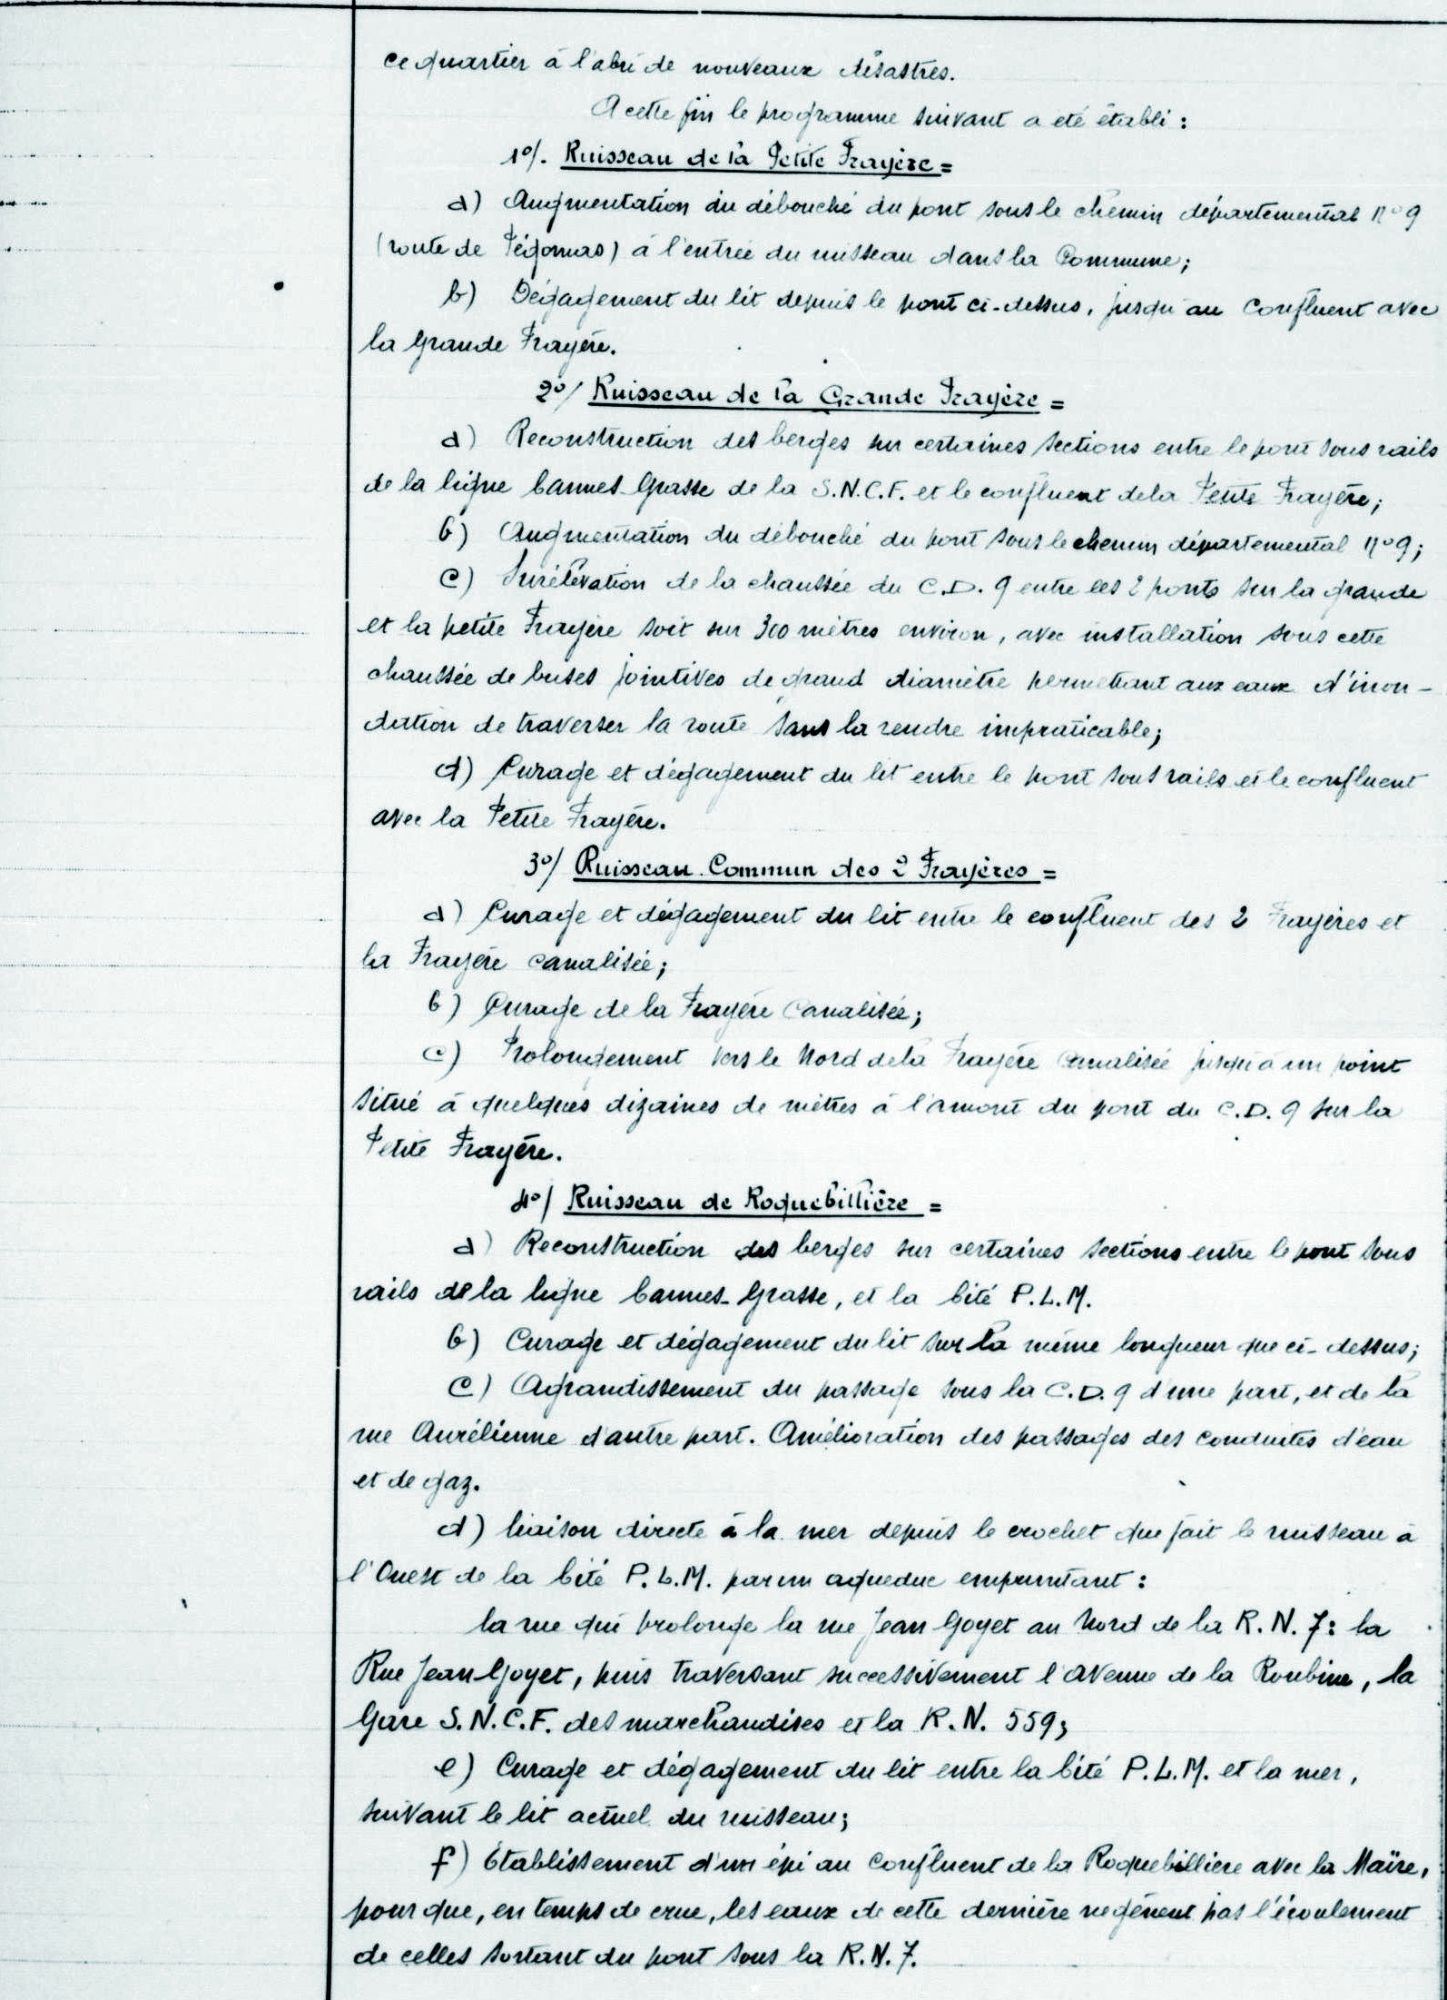 ce quartier à l'abri de nouveaux désastres.
A cette fin le programme suivant a été établi :
1°/. Ruisseau de la Petite Frayère =
a) Augmentation du débouché du pont sous le chemin départemental n° 9
(route de Pégomas) à l'entrée du ruisseau dans la Commune;
b) Dégagement du lit depuis le pont ci-dessus, jusqu'au confluent avec
la Grande Frayère.
2°/ Ruisseau de la Grande Frayère =
a) Reconstruction des berges sur certaines sections entre le pont sous rails
de la ligne Cannes-Grasse de la S.N.C.F. et le confluent de la Petite Frayère;
b) Augmentation du débouché du pont sous le chemin départemental n° 9;
c) Surélévation de la chaussée du C.D. 9 entre les 2 ponts sur la grande
et la petite Frayère soit sur 300 mètres environ, avec installation sous cette
chaussée de buses jointives de grand diamètre permettant aux eaux d'inon-
dation de traverser la route sans la rendre impraticable;
d) Curage et dégagement du lit entre le pont sous rails et le confluent
avec la Petite Frayère.
3°/ Ruisseau Commun des 2 Frayères =
a) Curage et dégagement du lit entre le confluent des 2 Frayères et
la Frayère canalisée;
b) Curage de la Frayère Canalisée;
c) Prolongement vers le Nord de la Frayère canalisée jusqu'à un point
situé à quelques dizaines de mètres à l'amont du pont du C.D. 9 sur la
Petite Frayère.
4°/ Ruisseau de Roquebillière =
a) Reconstruction des berges sur certaines sections entre le pont sous
rails de la ligne Cannes-Grasse, et la Cité P.L.M.
b) Curage et dégagement du lit sur la même longueur que ci-dessus;
c) Agrandissement du passage sous la C.D. 9 d'une part, et de la
rue Aurélienne d'autre part. Amélioration des passages des conduites d'eau
et de gaz.
d) liaison directe à la mer depuis le crochet que fait le ruisseau à
l'Ouest de la Cité P.L.M. par un aqueduc empruntant :
la rue qui prolonge la rue Jean Goyet au Nord de la R.N. 7 : la
Rue Jean Goyet, puis traversant successivement l'avenue de la Roubine, la
Gare S.N.C.F. des marchandises et la R.N. 559;
e) Curage et dégagement du lit entre la Cité P.L.M. et la mer,
suivant le lit actuel du ruisseau;
f) Etablissement d'un épi au confluent de la Roquebillière avec la Maïre,
pour que, en temps de crue, les eaux de cette dernière ne gênent pas l'écoulement
de celles sortant du pont sous la R.N. 7.